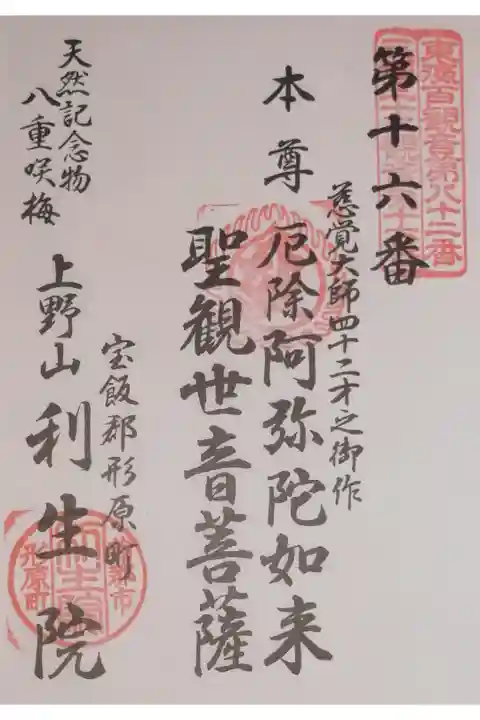 第十六番
慈覚大師四十二才之御作
本尊 厄除阿弥陀如来
聖観世音菩薩
宝飯郡形原町
天然記念物
八重咲梅
上野山 利生院
形原町